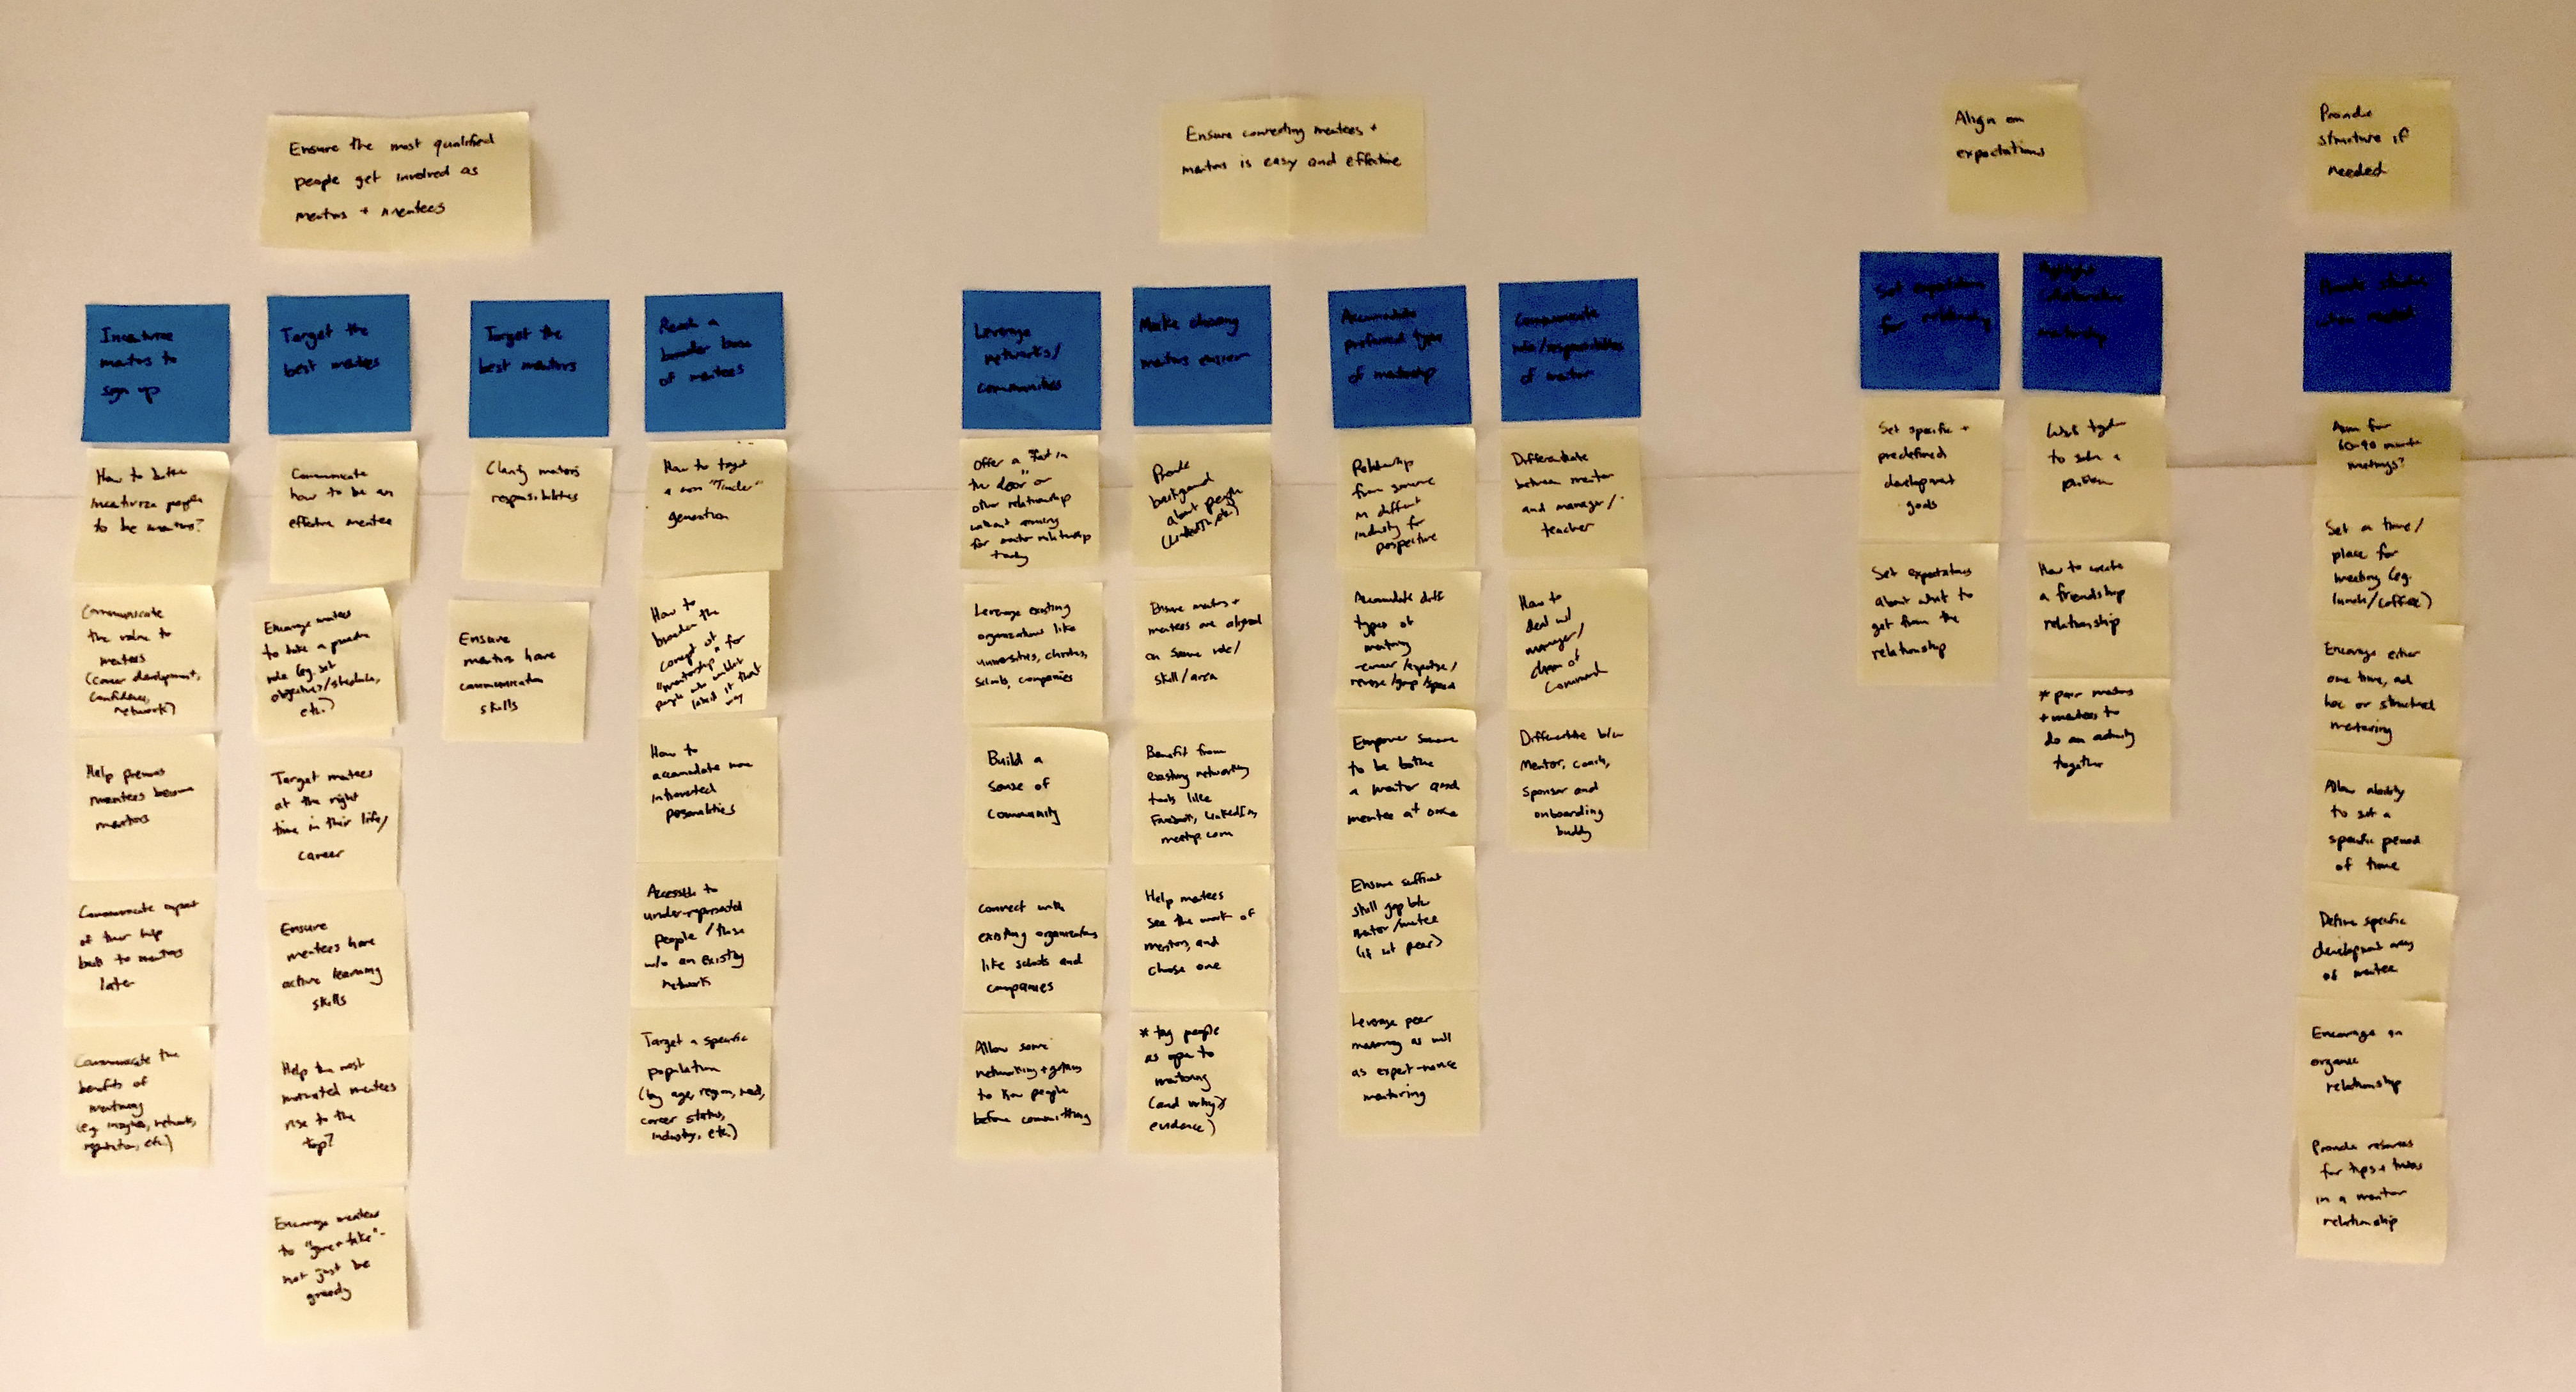 Ensure the most qualified
people get involved as
mentors + mentees
Incentivize
mentors to
sign up
How to better
incentivize people
to be mentors?
Communicate
the value to
mentees
(career development,
confidence,
network)
Help previous
mentees become
mentors
Communicate impact
of their help
back to mentors
later
Communicate the
benefits of
mentoring
(e.g. insights, network,
reputation, etc.)
Target the
best mentees
Communicate
how to be an
effective mentee
Encourage mentees
to take a proactive
role (eg. set
objectives/schedule,
etc.)
Target mentees
at the right
time in their life/
career
Ensure
mentees have
active learning
skills
Help the most
motivated mentees
rise to the
top?
Encourage mentees
to "give + take" -
not just be
greedy
Target the
best mentors
Clarify mentors
responsibilities
Ensure
mentors have
communication
skills
Reach a
broader base
of mentees
How to target
a non "Tinder"
generation
How to
broaden the
concept of
"mentorship" for
people who wouldn't
label it that
way
How to
accomodate more
introverted
personalities
Accessible to
under-represented
people / those
w/o an existing
network
Target a specific
population
(by age, region, need,
career status,
industry, etc.)
Ensure connecting mentees +
mentors is easy and effective
Leverage
networks/
communities
Offer a "foot in
the door" or
other relationship
without
for mentor relationship
Leverage existing
organizations like
universities, churches,
schools, companies
Build a
sense of
community
Connect with
existing organizations
like schools and
companies
Allow some
networking + getting
to know people
before committing
Make choosing
mentors easier
Provide
background
about people
(LinkedIn, etc)
Ensure mentors +
mentees are aligned
on same role/
skill/area
Benefit from
existing networking
tools like
Facebook, LinkedIn,
meetup.com
Help mentees
see the work of
mentors, and
choose one
* tag people
as open to
mentoring
(and why)/
evidence)
Accomodate
preferred type
of mentorship
Relationship
from someone
in different
industry for
perspective
Accomodate diff
types of
mentoring
- career/expertise/
reverse/group/speed
Empower someone
to be both
a mentor and
mentee at once
Ensure sufficient
skill gap b/w
mentor/mentee
(if not peer)
Leverage peer
mentoring as well
as expert-novice
mentoring
Communicate
role/responsibilities
of mentor
Differentiate
between mentor
and manager/
teacher
How to
deal w/
manager/
chain of
command
Differentiate b/w
mentor, coach,
sponsor and
onboarding
buddy
Align on
expectations
Set expectations
for relationship
Set specific +
predefined
development
goals
Set expectations
about what to
get from the
relationship
Highlight
collaborative
mentorship
Work together
to solve a
problem
How to create
a friendship
relationship
* pair mentors
+ mentees to
do an activity
together
Provide
structure if
needed
Provide structure
when needed
Aim for
60-90 minute
meetings?
Set a time/
place for
meeting (eg.
lunch/coffee)
Encourage either
one time, ad
hoc or structured
mentoring
Allow ability
to set a
specific period
of time
Define specific
development areas
of mentee
Encourage an
organic
relationship
Provide resources
for tips + tricks
in a mentor
relationship